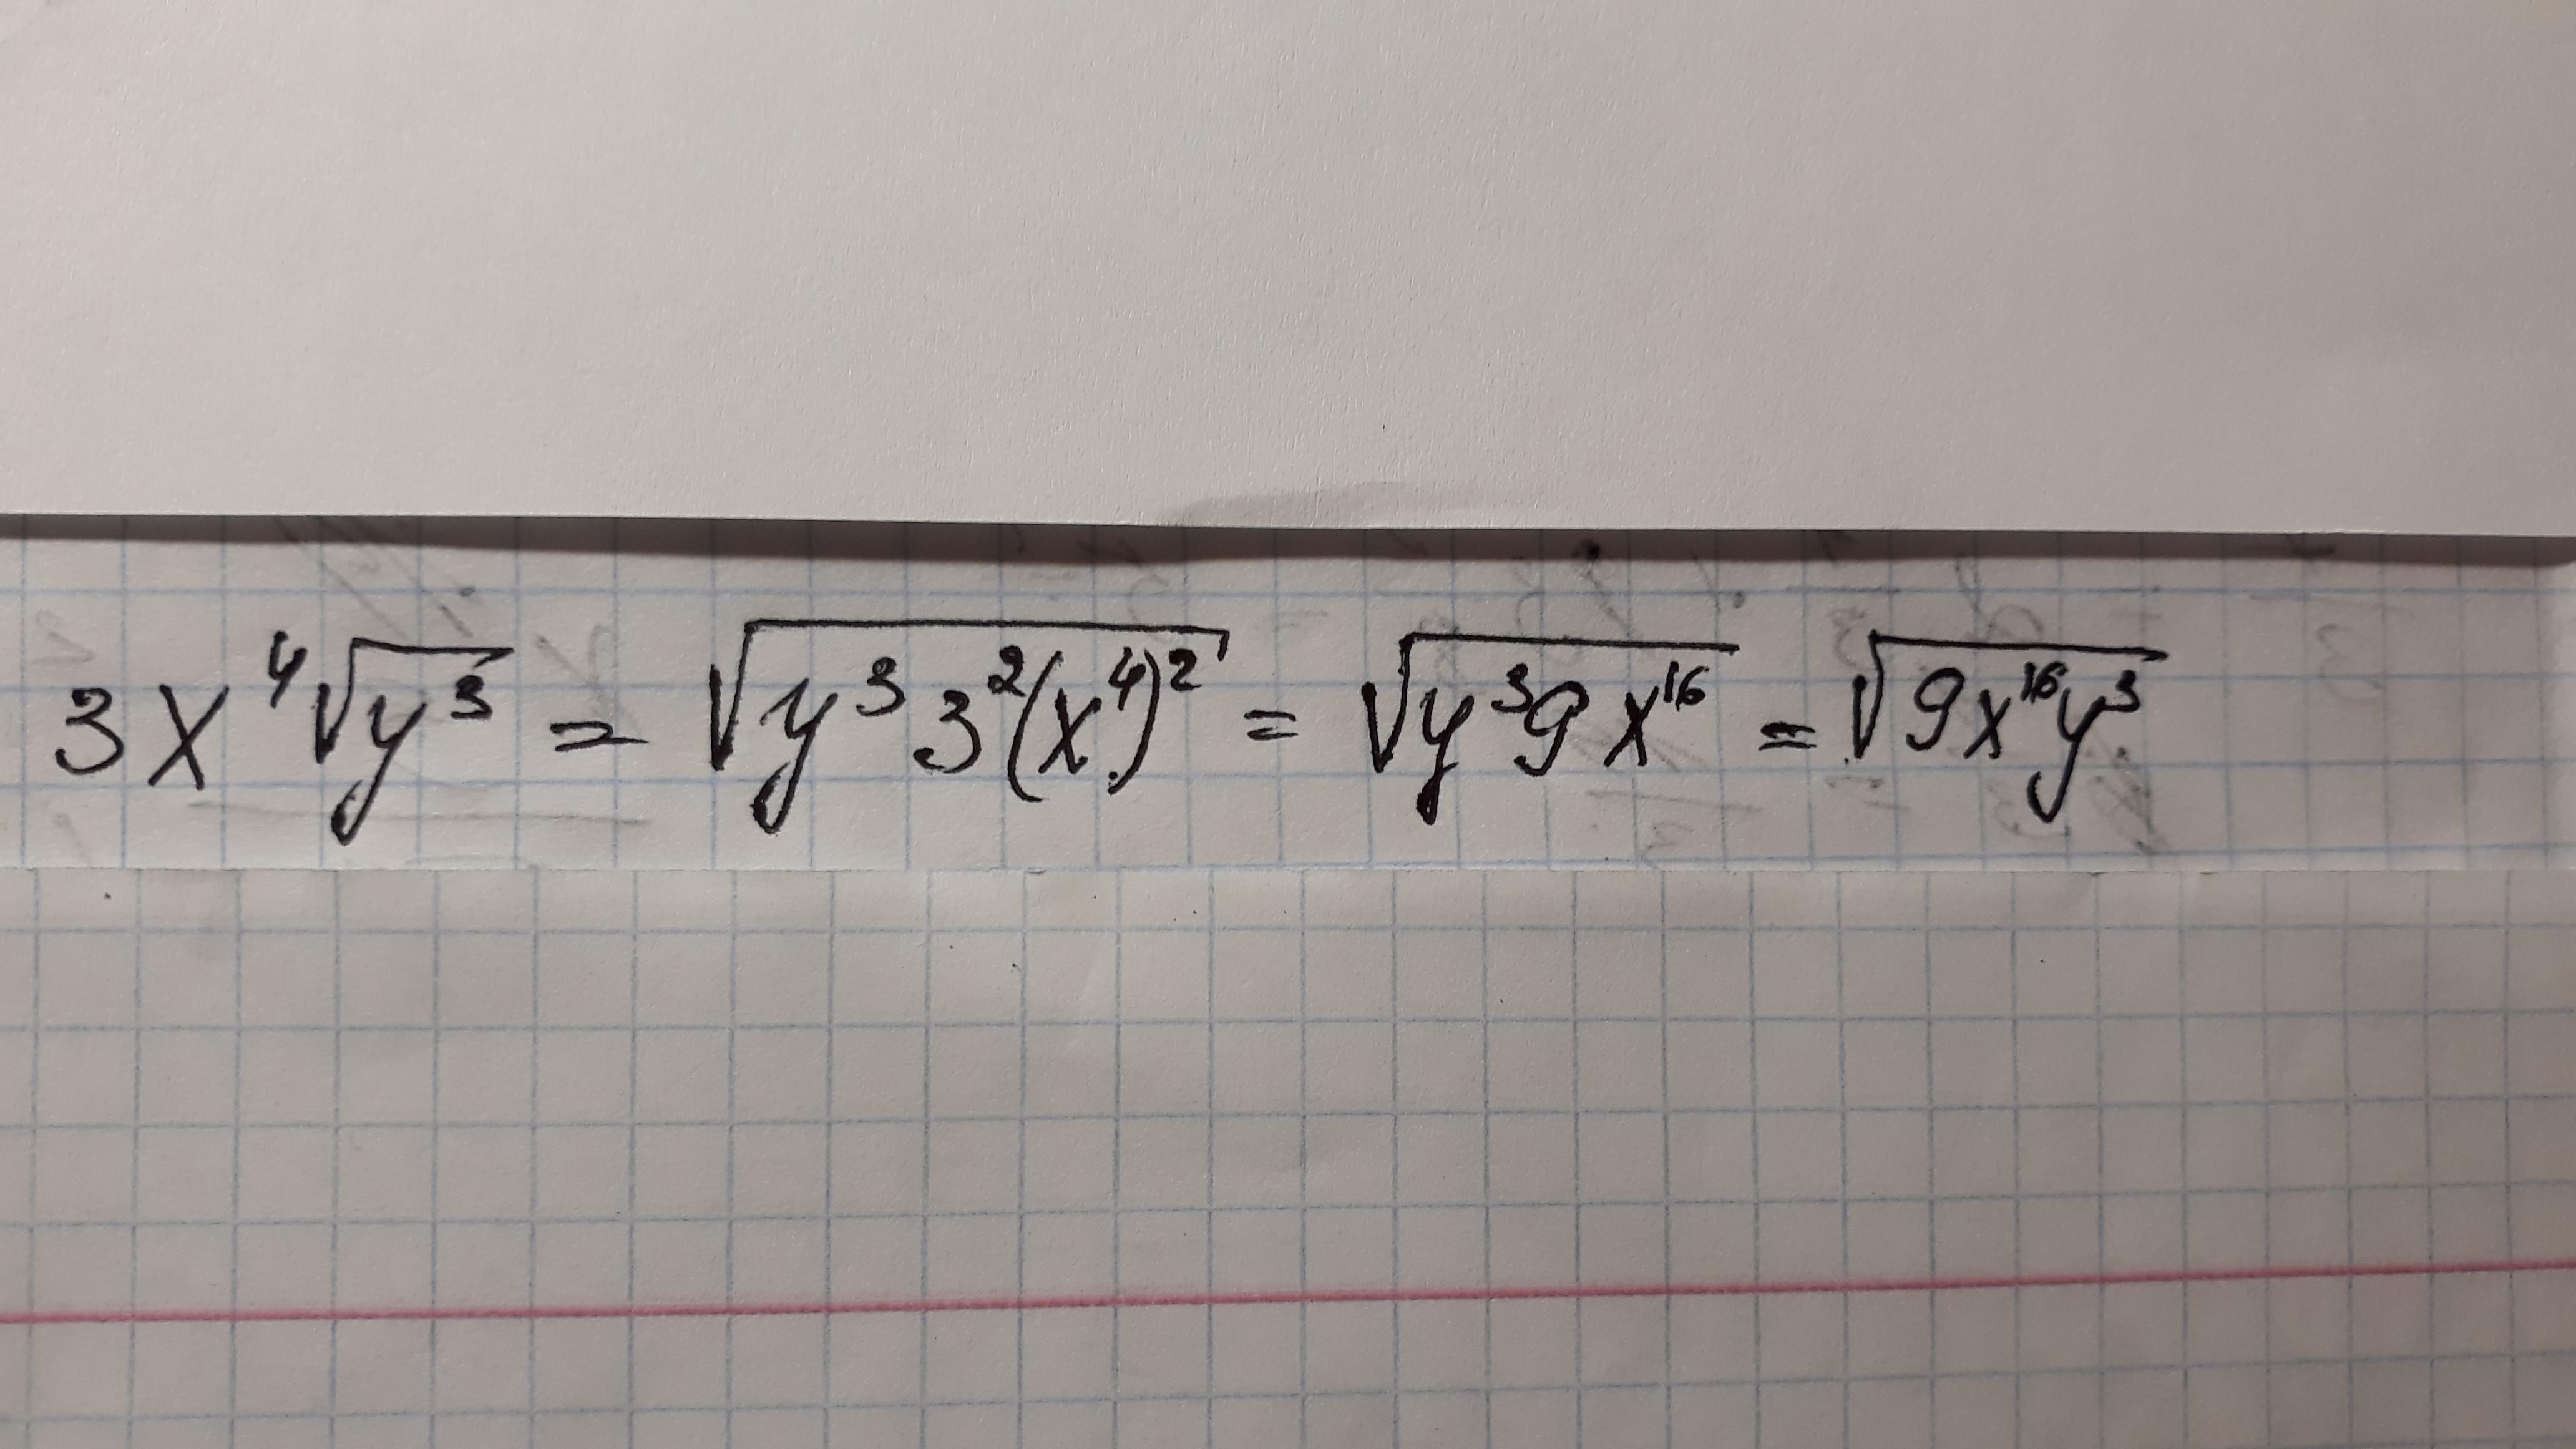 3x⁴√y³ = √y³3²(x⁴)² = √y³9x¹⁶ = √9x¹⁶y³